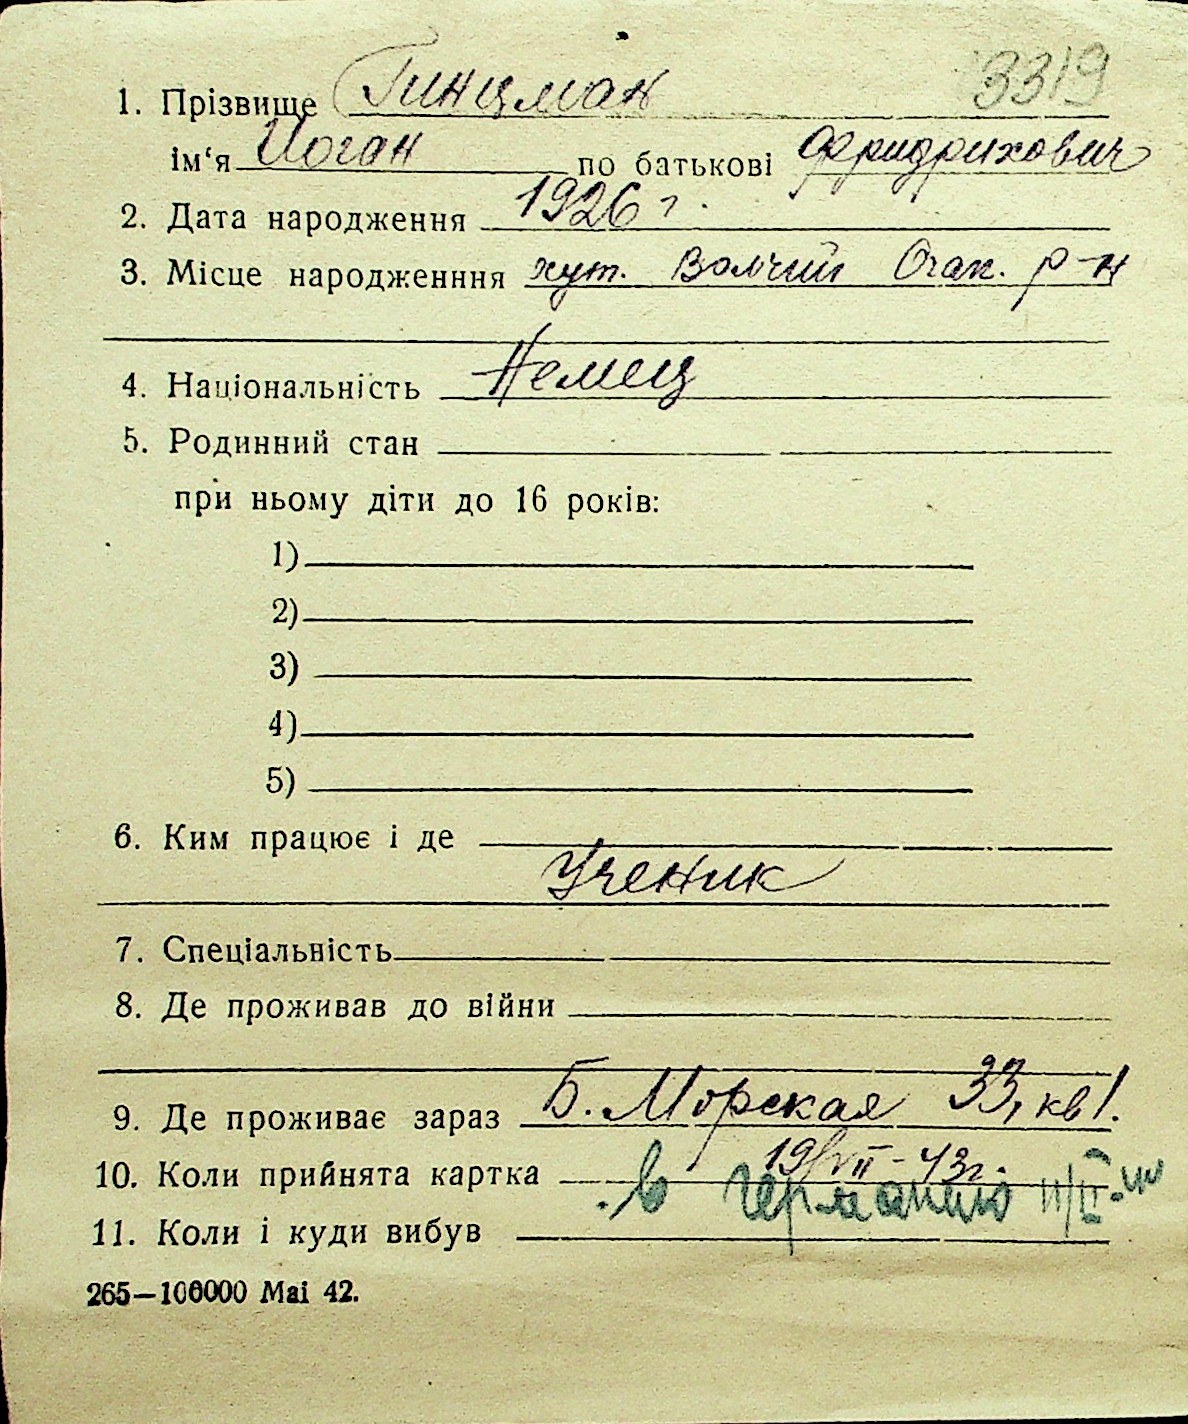 3319
1. Прізвище Гинцман
ім‘я Иоган по батькові Фридрихович
2. Дата народження 1926 г.
3. Місце народженння хут. Волчий Очак. р-н
4. Національність Немец
5. Родинний стан
при ньому діти до 16 років:
1)
2)
3)
4)
5)
6. Ким працює і де
Ученик
7. Спеціальність
8. Де проживав до війни
9. Де проживає зараз Б. Морская 33, кв 1.
10. Коли прийнята картка 19/VII-43г.
11. Коли і куди вибув в Германию
265—100000 Маі 42.